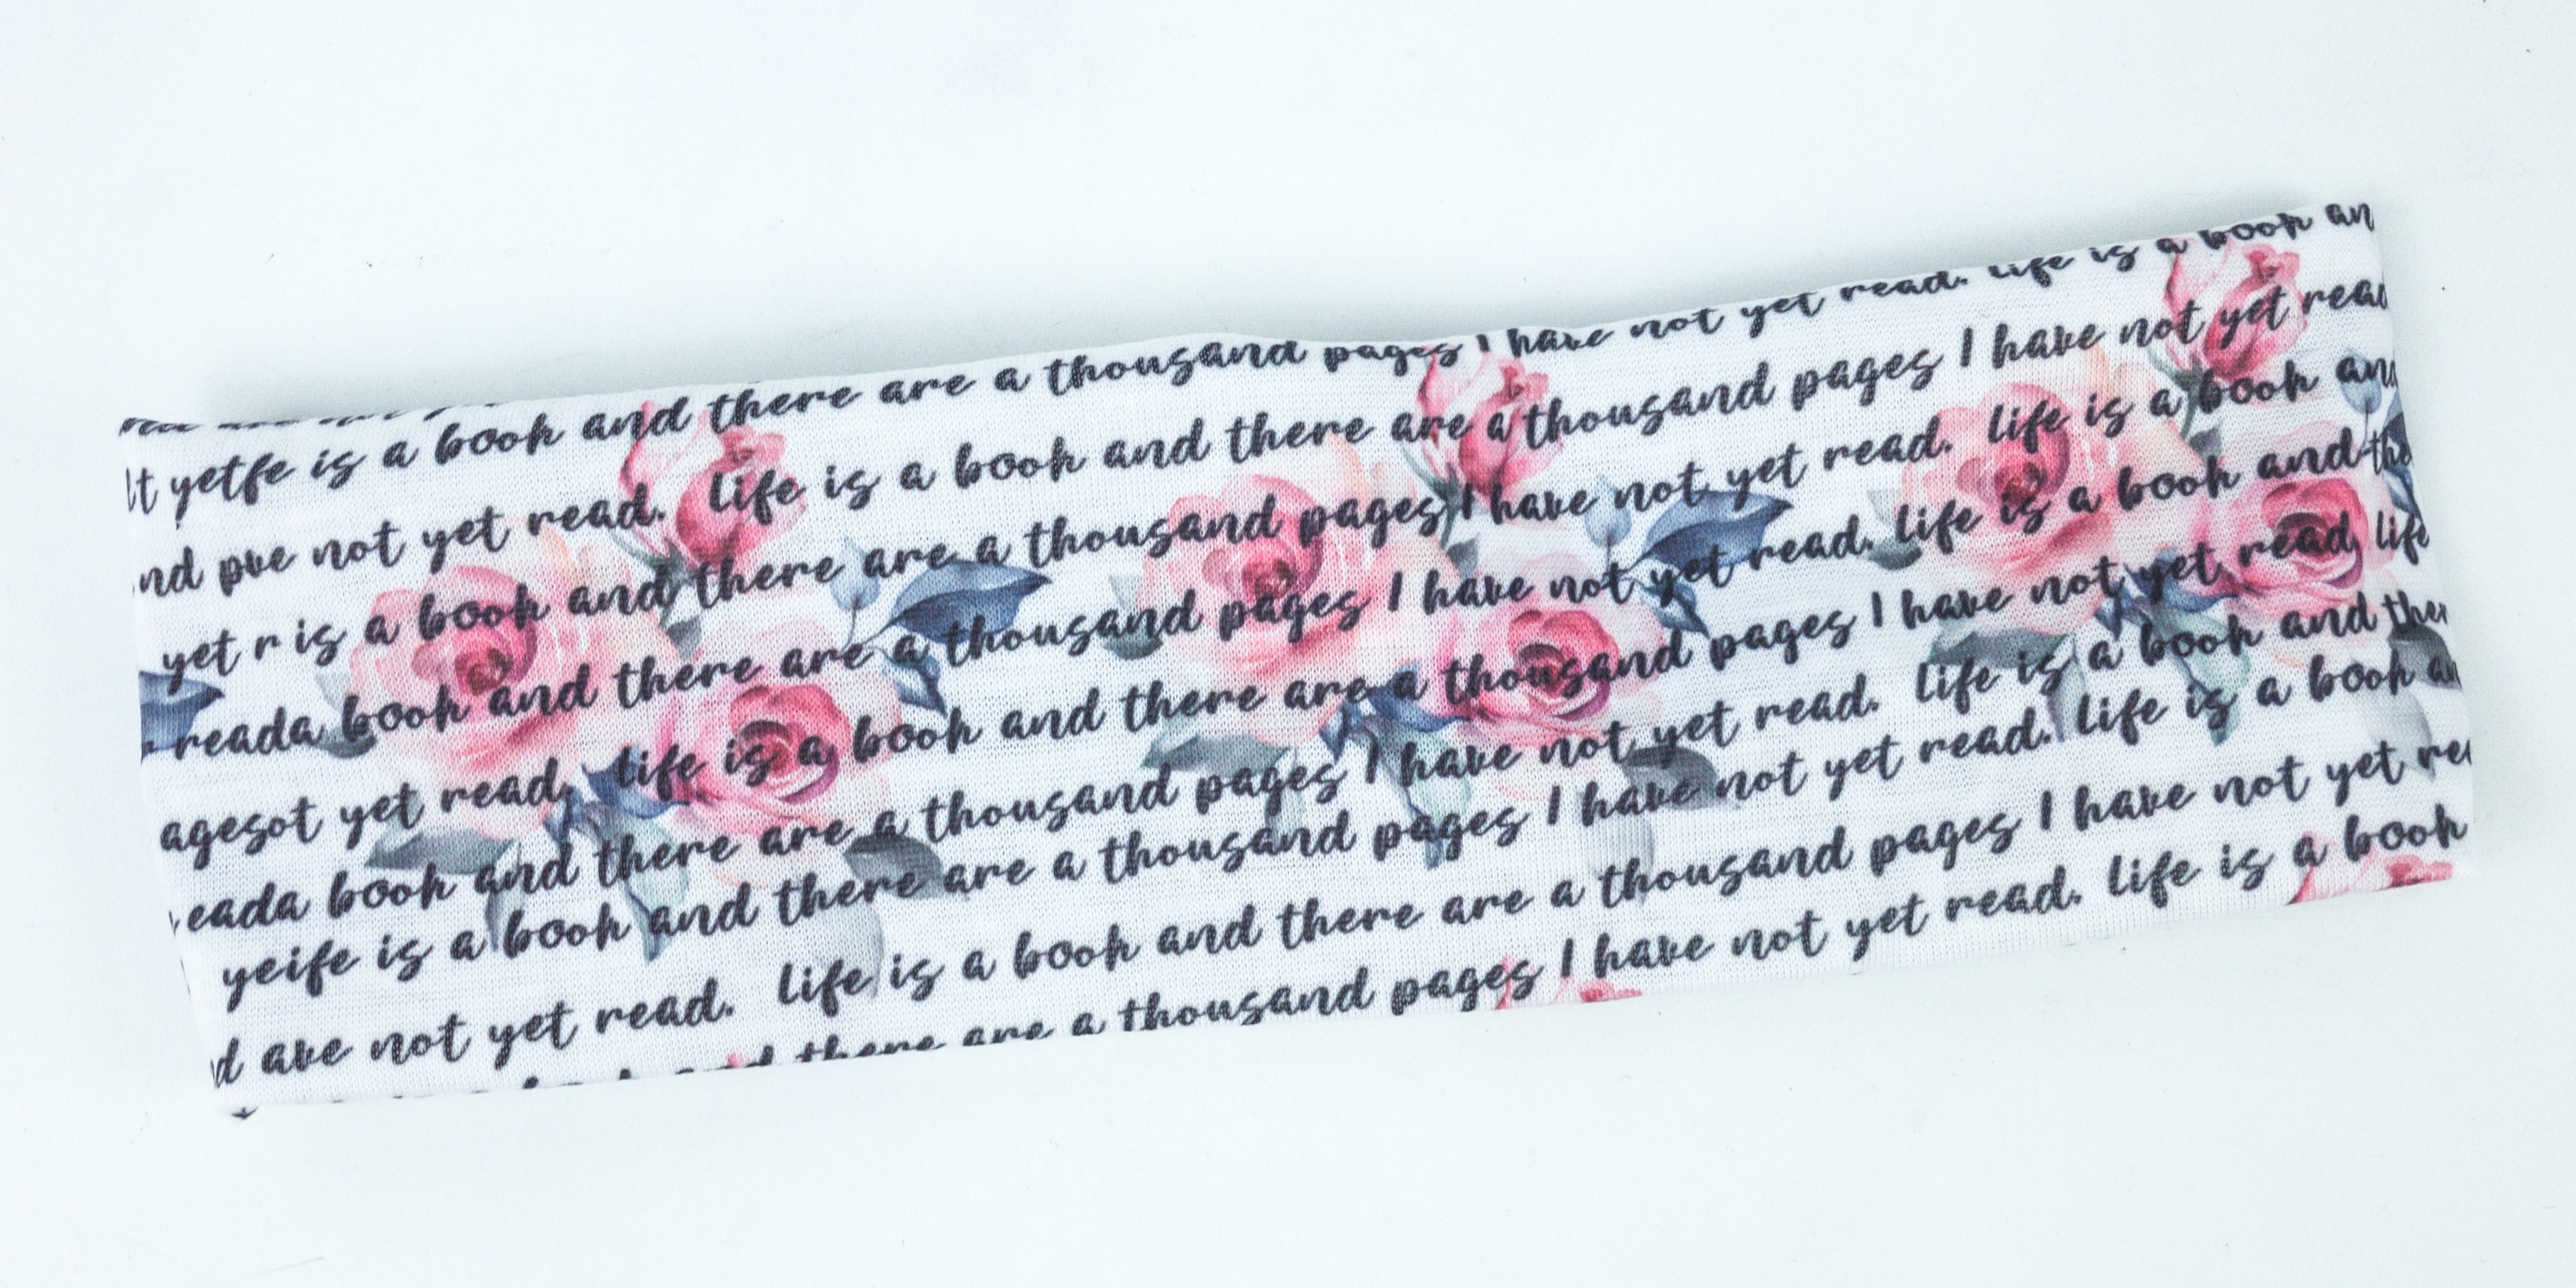 yetfe is a book and there are a thousand pages I have not yet read. life is a book an
nd pve not yet read. life is a book and there are a thousand pages I have not yet rea
yet r is a book and there are a thousand pages I have not yet read. life is a book and
reada book and there are a thousand pages I have not yet read. life is a book and the
agesot yet read. life is a book and there are a thousand pages I have not yet read. life
eada book and there are a thousand pages I have not yet read. life is a book and the
yeife is a book and there are a thousand pages I have not yet read. life is a book a
d ave not yet read. life is a book and there are a thousand pages I have not yet re
there are a thousand pages I have not yet read. life is a book